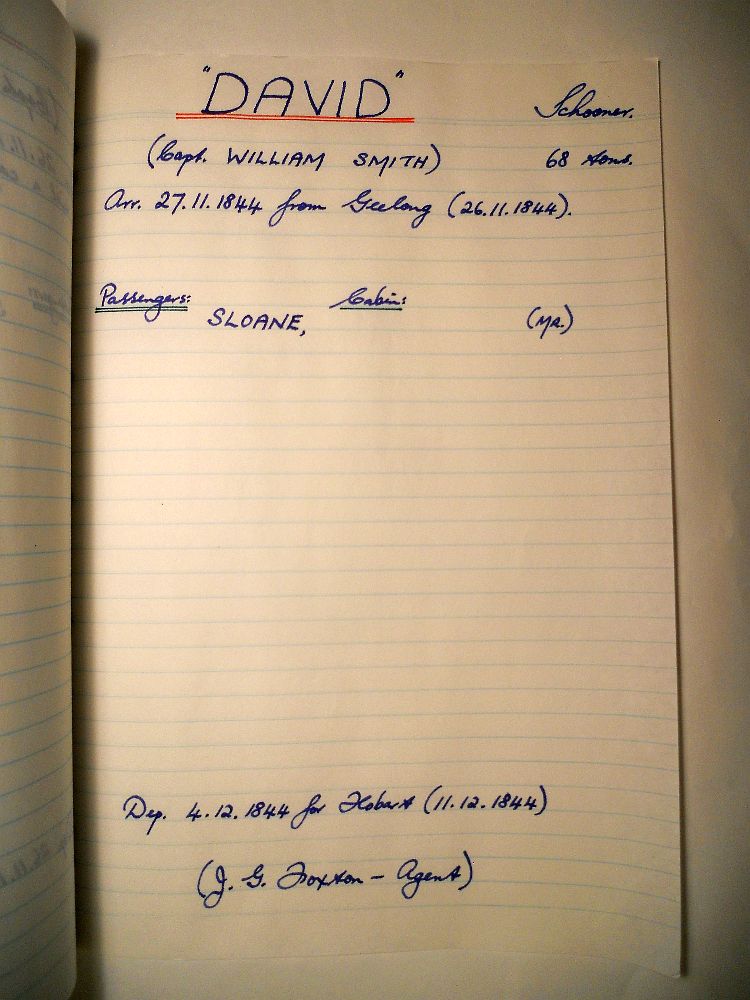 "DAVID" Schooner.
(Capt. WILLIAM SMITH) 68 tons.
Arr. 27.11.1844 from Geelong (26.11.1844).
Passengers: Cabin:
SLOANE, (MR.)
Dep. 4.12.1844 for Hobart (11.12.1844)
(J. G. Foxton - Agent)